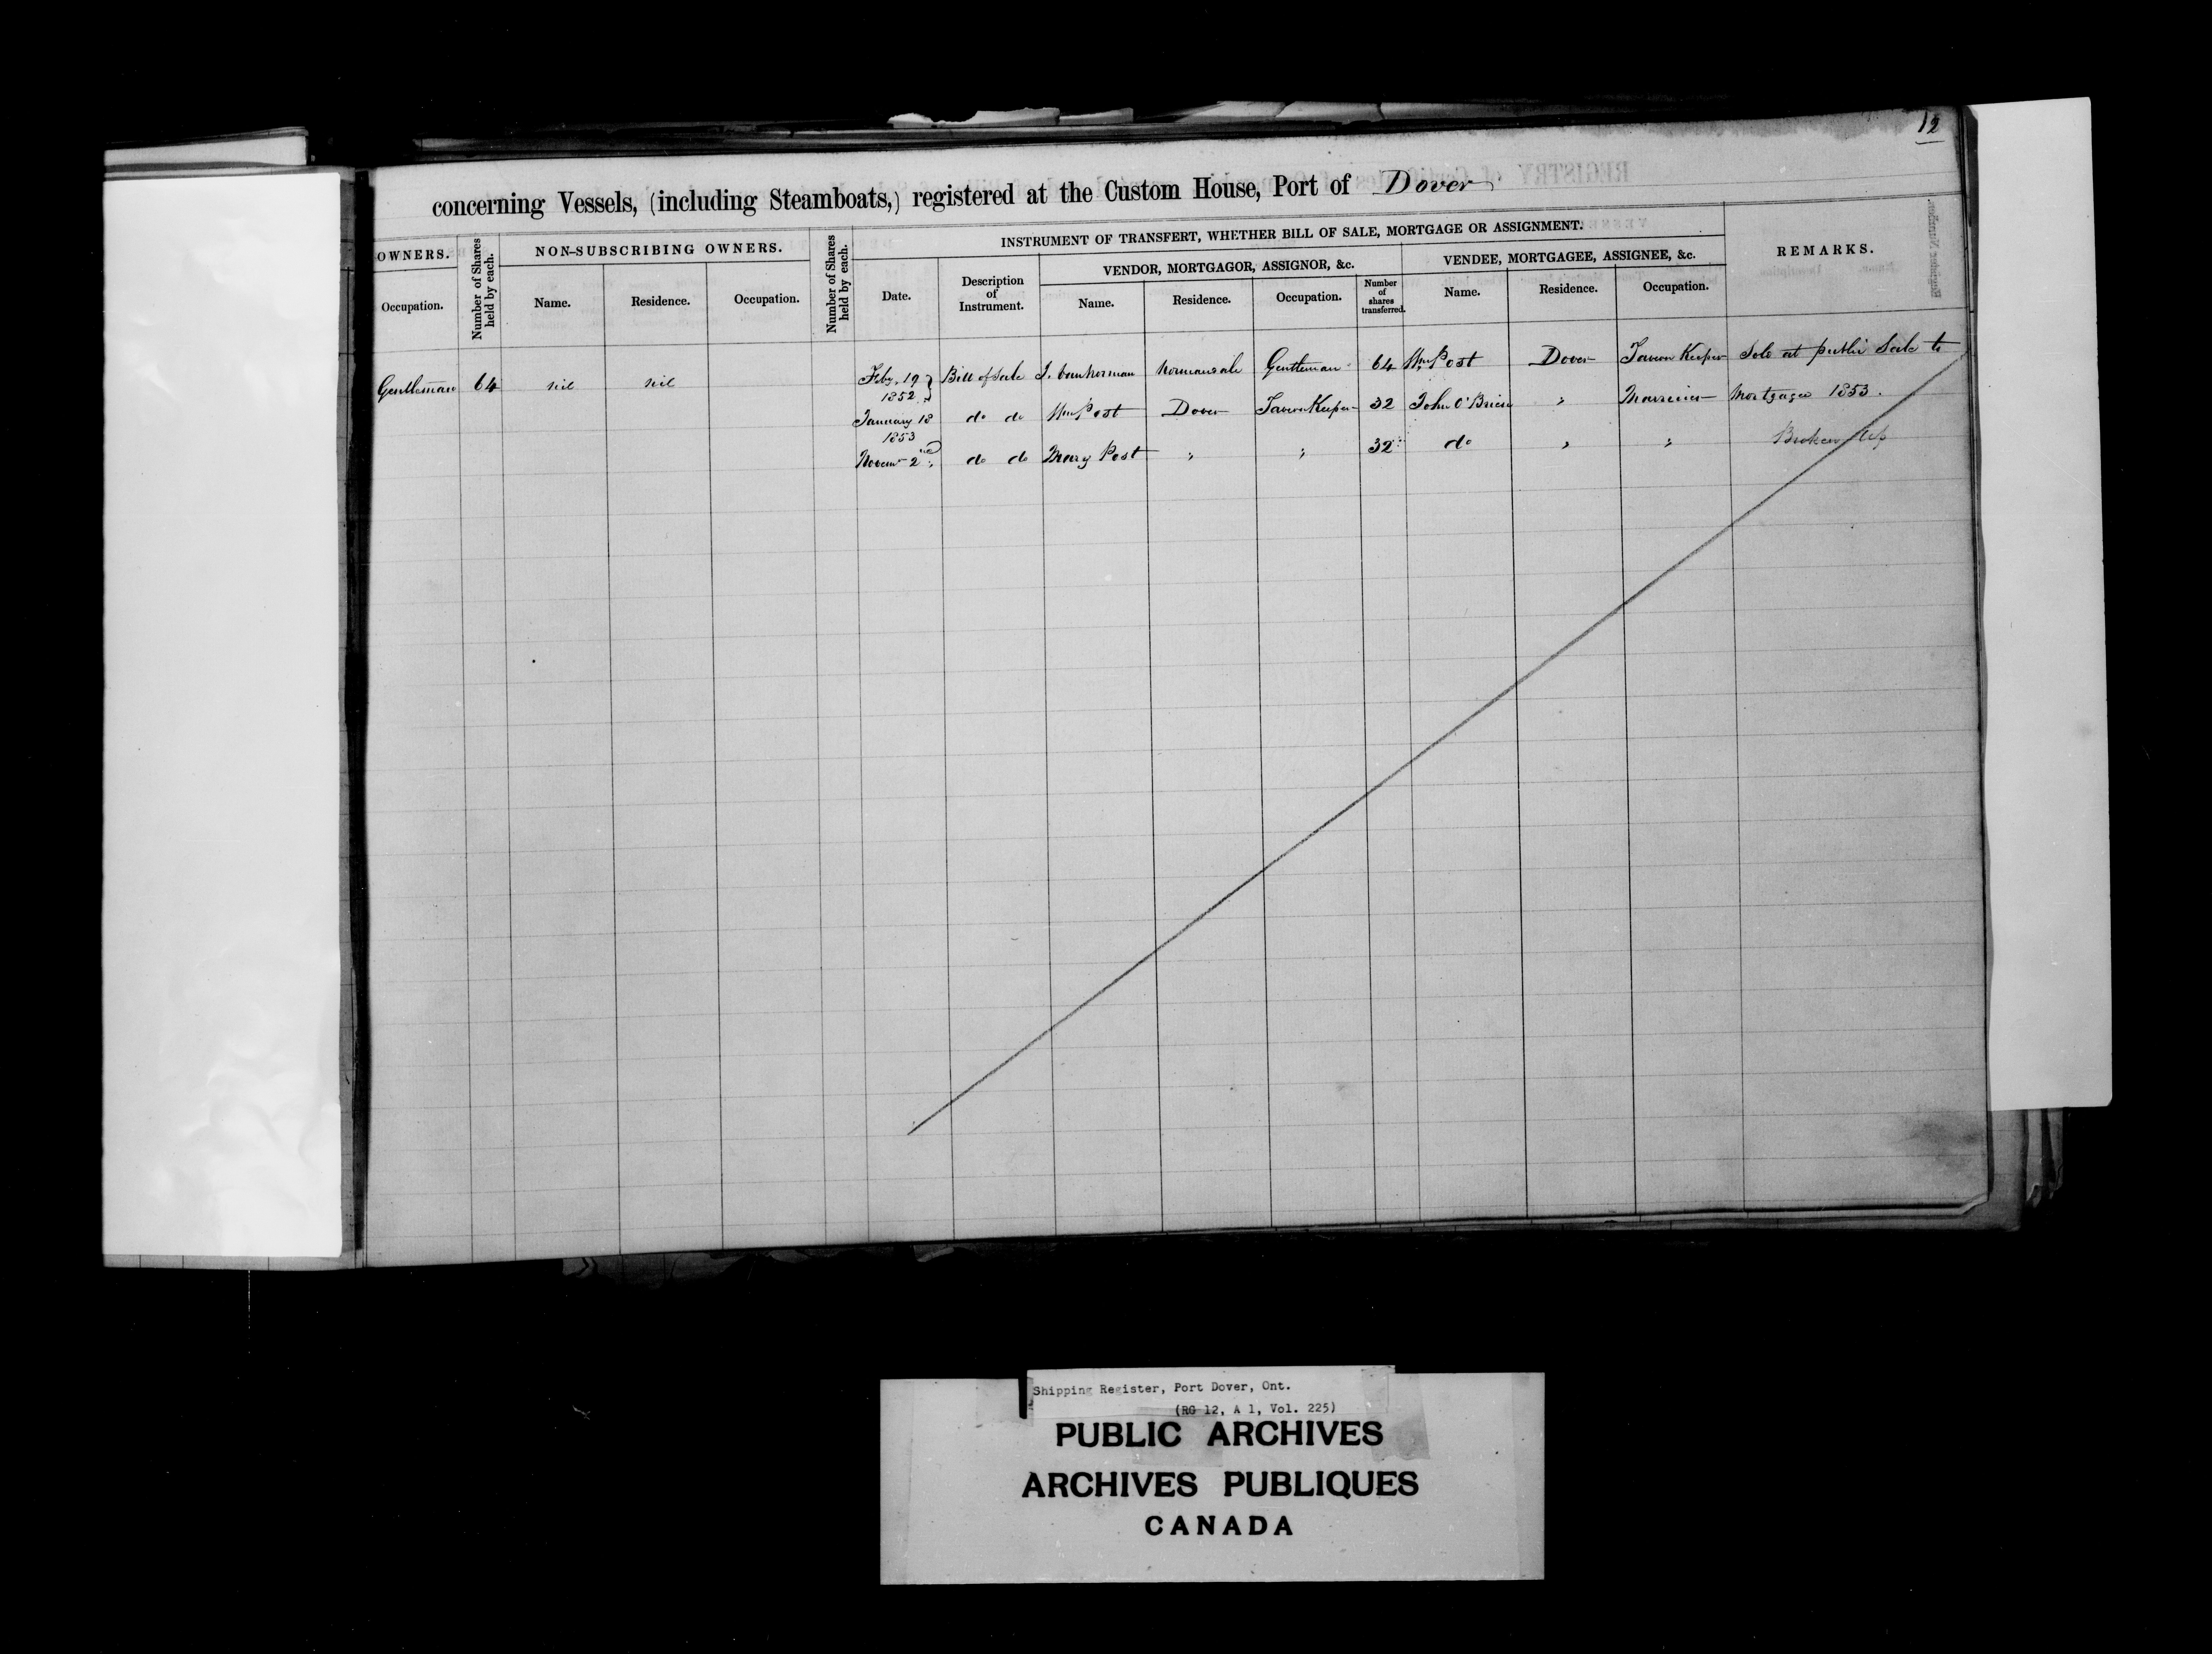 12
concerning Vessels, (including Steamboats,) registered at the Custom House, Port of Dover
OWNERS.
Occupation.
Number of Shares held by each.
NON-SUBSCRIBING OWNERS.
Name.
Residence.
Occupation.
Number of Shares held by each.
INSTRUMENT OF TRANSFERT, WHETHER BILL OF SALE, MORTGAGE OR ASSIGNMENT.
Date.
Description
of
Instrument.
VENDOR, MORTGAGOR, ASSIGNOR, &c.
Name.
Residence.
Occupation.
Number
of
shares
transferred.
VENDEE, MORTGAGEE, ASSIGNEE, &c.
Name.
Residence.
Occupation.
REMARKS.
Gentleman 64 nil nil Feby. 19 Bill of Sale J. Van Norman Normansdale Gentleman 64 Wm Post Dover Tavern Keeper Sold at public Sale to
1852
January 18 do do Wm Post Dover Tavern Keeper 32 John O'Brien " Marriner Mortgagee 1853.
1853
Novemr 2nd " do do Mary Post " " 32 do " " Broken Up
Shipping Register, Port Dover, Ont.
(RG 12, A 1, Vol. 225)
PUBLIC ARCHIVES
ARCHIVES PUBLIQUES
CANADA